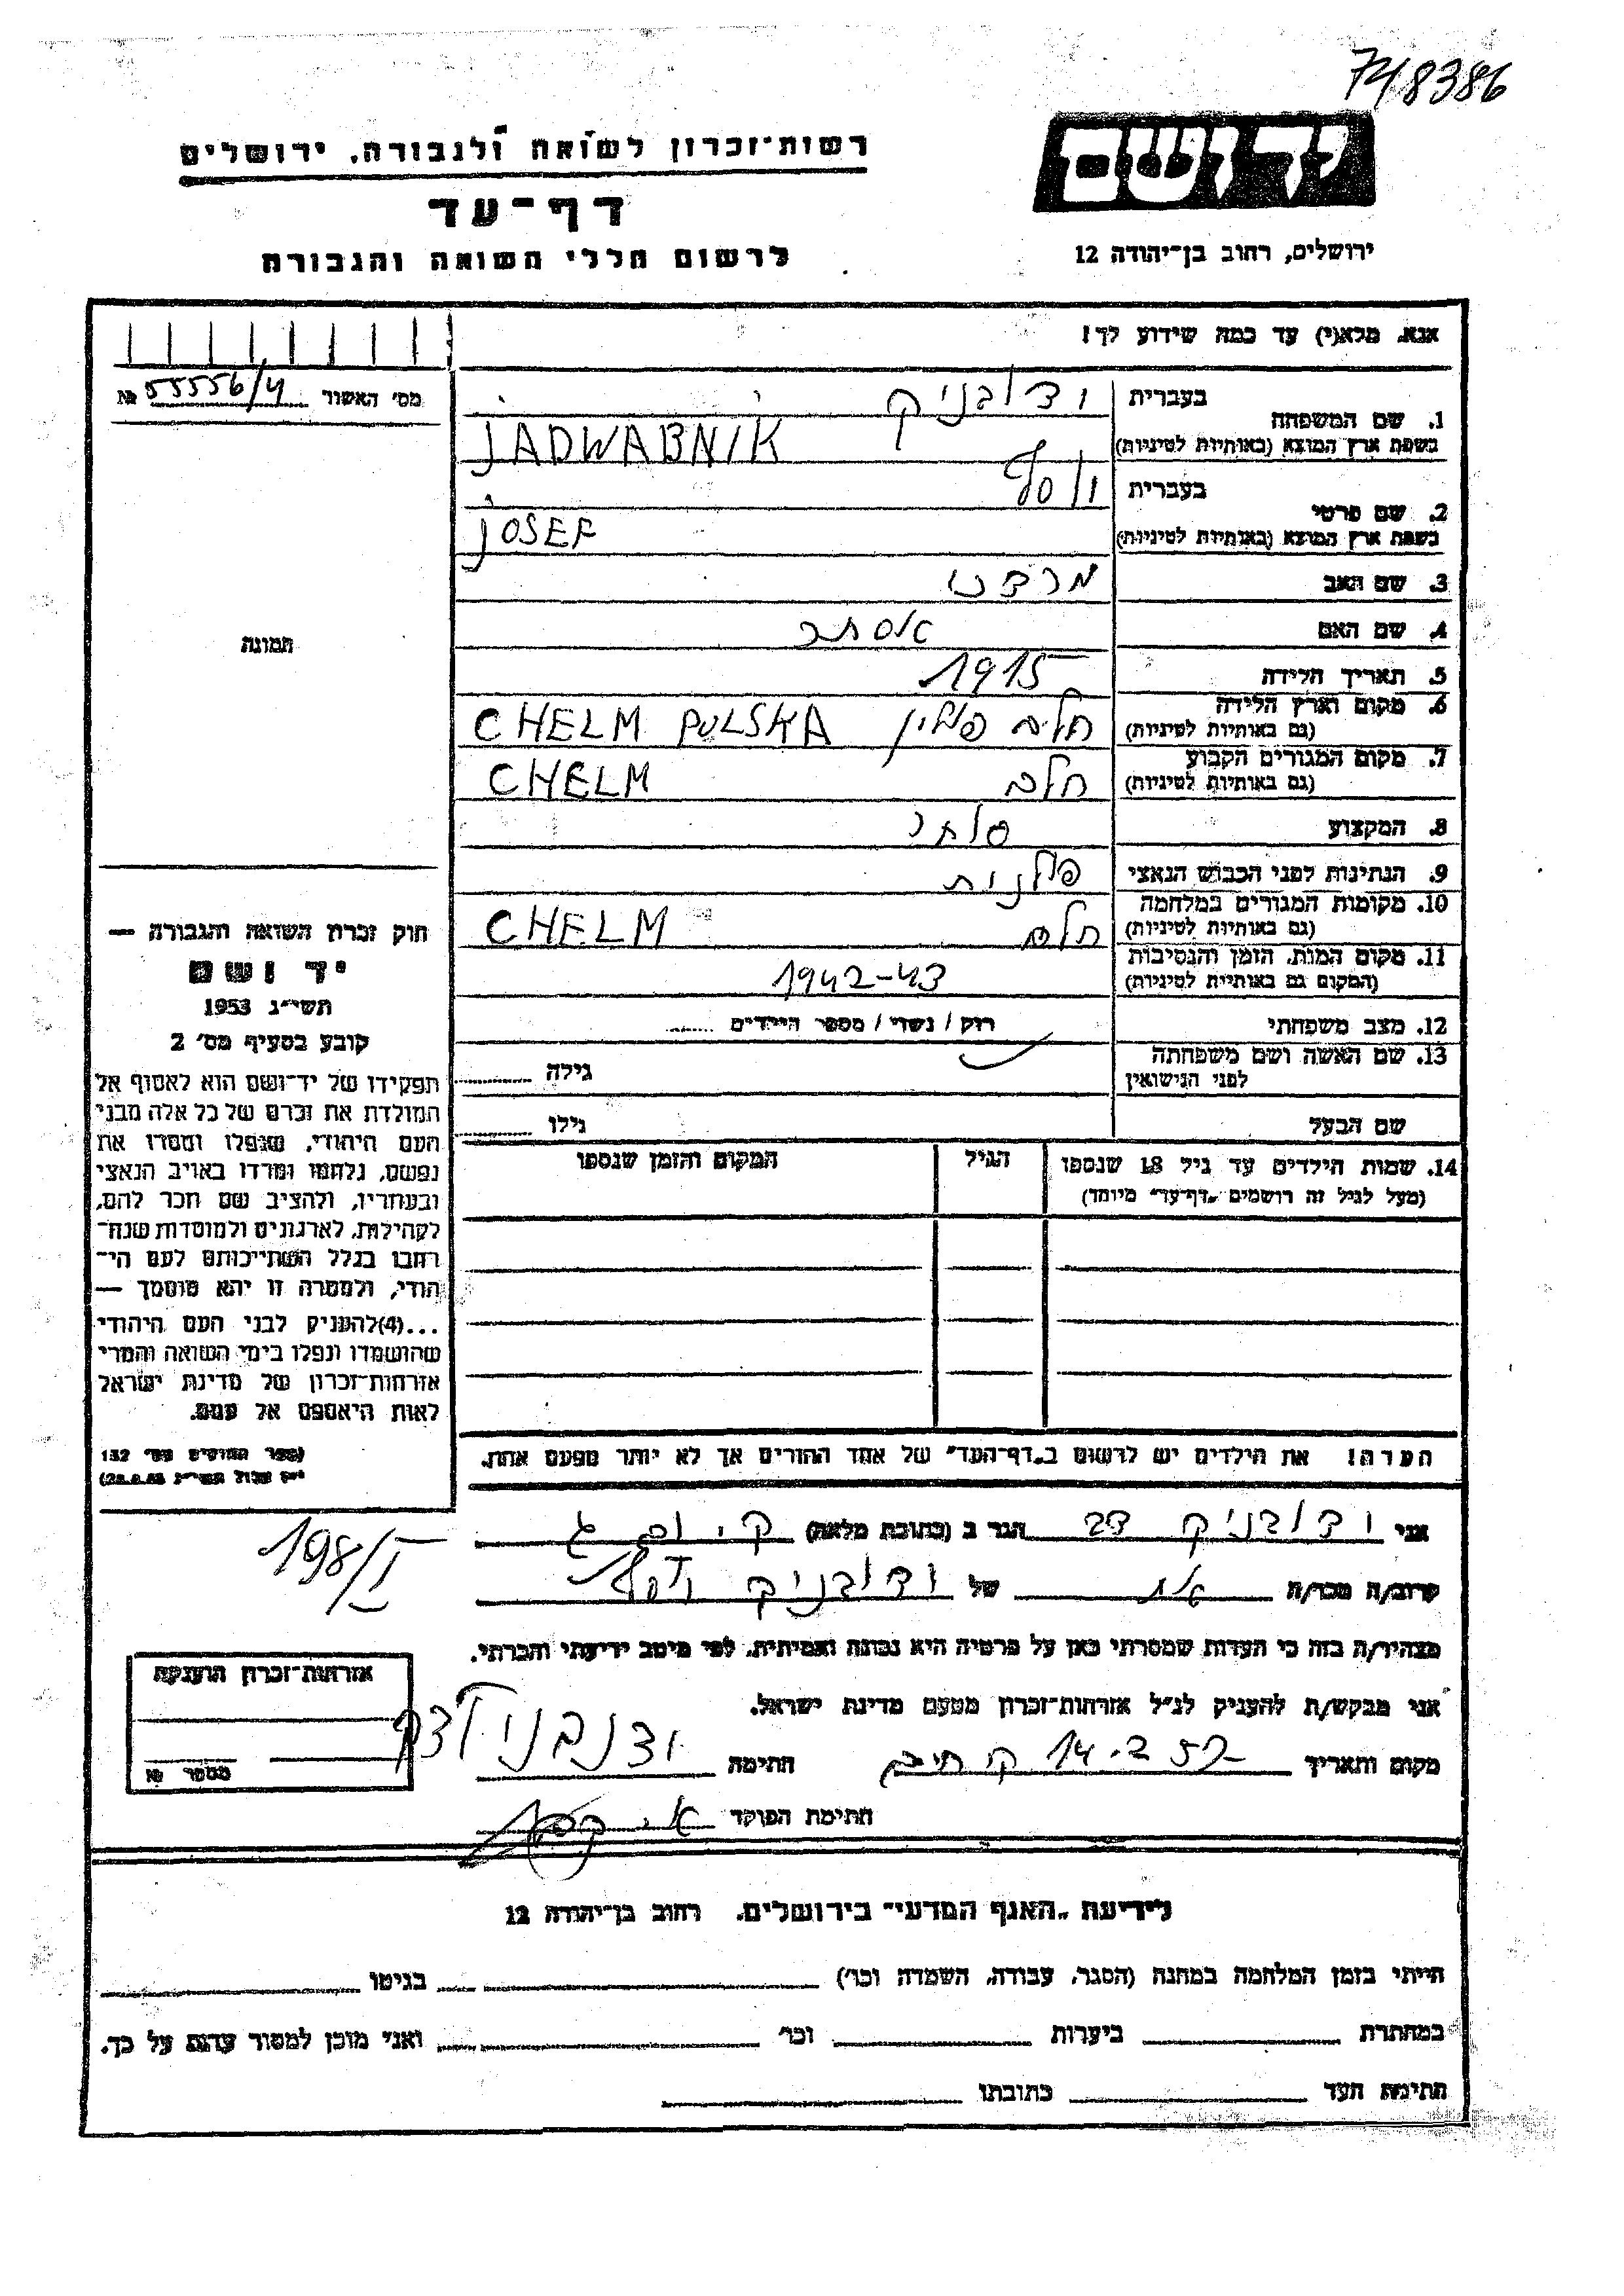 748386
יד ושם
רשות־זכרון לשואה ולגבורה, ירושלים
דף־עד
לרשום חללי השואה והגבורה
ירושלים, רחוב בן־יהודה 12
אנא, מלא(י) עד כמה שידוע לך!
מס׳ האשור № 55556/4
1. שם המשפחה
בעברית
ידובניק
בשפת ארץ המוצא (באותיות לטיניות)
JADWABNIK
2. שם פרטי
בעברית
יוסף
בשפת ארץ המוצא (באותיות לטיניות)
JOSEF
3. שם האב
מרדכי
4. שם האם
אסתר
5. תאריך הלידה
1915
6. מקום וארץ הלידה
(גם באותיות לטיניות)
חלם פולין CHELM POLSKA
7. מקום המגורים הקבוע
(גם באותיות לטיניות)
חלם CHELM
8. המקצוע
סוחר
9. הנתינות לפני הכבוש הנאצי
פולנית
10. מקומות המגורים במלחמה
(גם באותיות לטיניות)
חלם CHELM
11. מקום המות, הזמן והנסיבות
(המקום גם באותיות לטיניות)
1942-43
12. מצב משפחתי
רוק / נשוי / מספר הילדים
13. שם האשה ושם משפחתה
לפני הנישואין
גילה
שם הבעל
גילו
14. שמות הילדים עד גיל 18 שנספו
(מעל לגיל זה רושמים „דף־עד״ מיוחד)
הגיל
המקום והזמן שנספו
תמונה
חוק זכרון השואה והגבורה —
יד ושם
תשי״ג 1953
קובע בסעיף מס׳ 2
תפקידו של יד־ושם הוא לאסוף אל
המולדת את זכרם של כל אלה מבני
העם היהודי, שנפלו ומסרו את
נפשם, נלחמו ומרדו באויב הנאצי
ובעוזריו, ולהציב שם וזכר להם,
לקהילות, לארגונים ולמוסדות שנח־
רבו בגלל השתייכותם לעם הי־
הודי, ולמטרה זו יהא מוסמך —
...(4)להעניק לבני העם היהודי
שהושמדו ונפלו בימי השואה והמרי
אזרחות־זכרון של מדינת ישראל
לאות היאספם אל עמם.
(ספר החוקים מס׳ 132
הערה! את הילדים יש לרשום ב„דף־העד״ של אחד ההורים אך לא יותר מפעם אחת.
אני ידובניק הגר ב (כתובת מלאה) ק. ים
קרוב/ה מכר/ה של ידובניק יוסף
198/I
מצהיר/ה בזה כי העדות שמסרתי כאן על פרטיה היא נכונה ואמיתית, לפי מיטב ידיעתי והכרתי.
אני מבקש/ת להעניק לנ״ל אזרחות־זכרון מטעם מדינת ישראל.
מקום ותאריך ק חיים 14. חתימה
חתימת הפוקד
אזרחות־זכרון הוענקה
מספר №
לידיעת „האגף המדעי״ בירושלים, רחוב בן־יהודה 12
הייתי בזמן המלחמה במחנה (הסגר, עבודה, השמדה וכו׳) בגיטו
במחתרת ביערות וכו׳ ואני מוכן למסור עדות על כך.
חתימת העד כתובתו